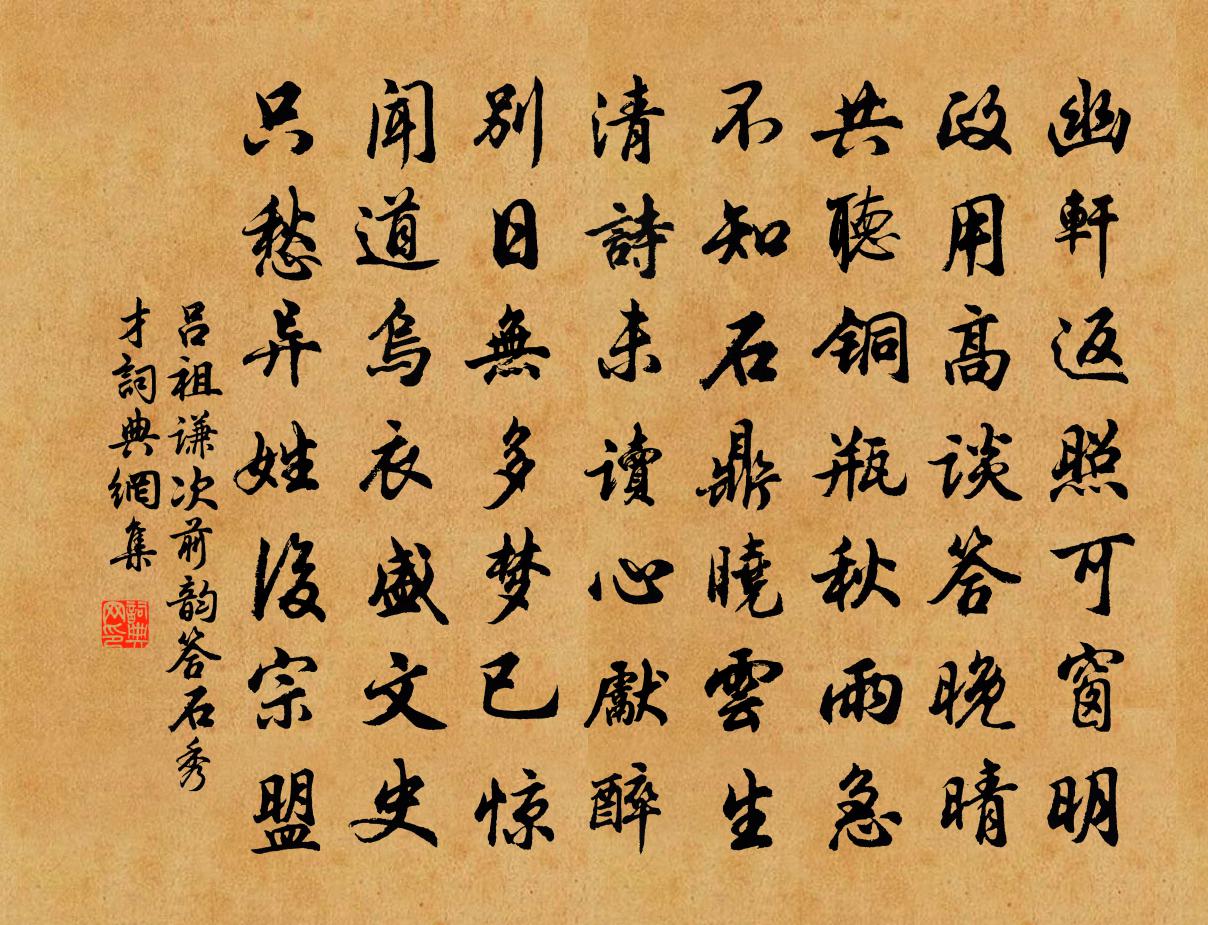 幽軒返照可窗明
政用高谈答晚晴
共聽铜瓶秋雨急
不知石鼎曉雲生
清詩未讀心獻醉
别日無多梦已惊
闻道烏衣盛文史
只愁异姓後宗盟
吕祖谦次前韵答石秀
才詞典網集
詞典
网印